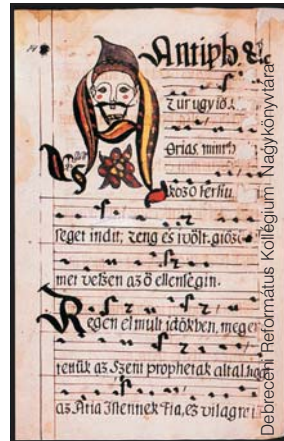 Antiph
zur ugy ió.
Orias, minth
kozo herku
seget indit, zeng es ivölt. giözö
met veszen az ö ellensegin.
Regen el mult idökben, meger
tettük az Szent prophetak altal, hog
az Atia Istennek Fia, ez vilagra i
Debreceni Református Kollégium Nagykönyvtára